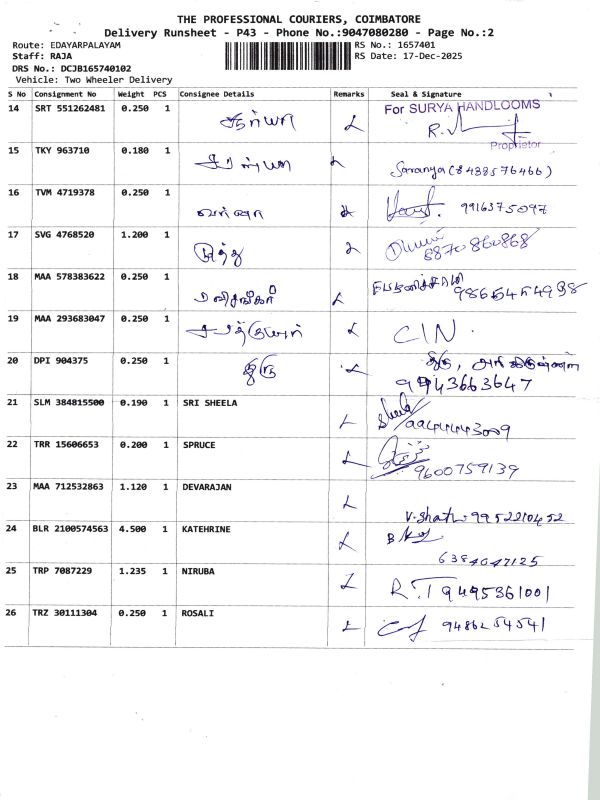 THE PROFESSIONAL COURIERS, COIMBATORE
Delivery Runsheet - P43 - Phone No.:9047080280 - Page No.:2
Route: EDAYARPALAYAM RS No.: 1657401
Staff: RAJA RS Date: 17-Dec-2025
DRS No.: DCJB165740102
Vehicle: Two Wheeler Delivery
S No Consignment No Weight PCS Consignee Details Remarks Seal & Signature
14 SRT 551262481 0.250 1 For SURYA HANDLOOMS
Proprietor
15 TKY 963710 0.180 1
சரண்யா Saranya (8438576466)
16 TVM 4719378 0.250 1
வர்ஷா 9916375097
17 SVG 4768520 1.200 1
முத்து 8870860868
18 MAA 578383622 0.250 1
ரவிசங்கர்
19 MAA 293683047 0.250 1
சரத்குமார் CIN.
20 DPI 904375 0.250 1
திரு திரு,
9943663647
21 SLM 384815500 0.190 1 SRI SHEELA
Sheela
22 TRR 15606653 0.200 1 SPRUCE
9600759139
23 MAA 712532863 1.120 1 DEVARAJAN
9952210452
24 BLR 2100574563 4.500 1 KATEHRINE
6384047125
25 TRP 7087229 1.235 1 NIRUBA
R.T 9495361001
26 TRZ 30111304 0.250 1 ROSALI
9486254541